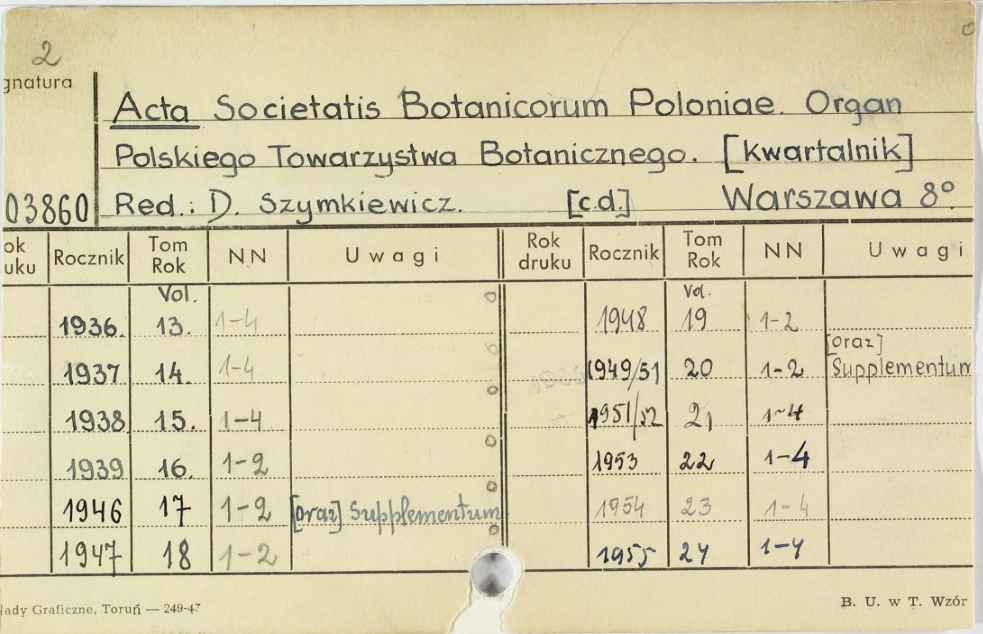 2
gnatura
Acta Societatis Botanicorum Poloniae. Organ
Polskiego Towarzystwa Botanicznego. [Kwartalnik]
03860 Red.: D. Szymkiewicz. [c.d.] Warszawa 8°.
ok uku Rocznik Tom Rok NN Uwagi Rok druku Rocznik Tom Rok NN Uwagi
Vol. Vol.
1936. 13. 1-4 1948 19 1-2
1937 14. 1-4 1949/51 20 1-2 [oraz] Supplementum
1938 15. 1-4 1951/52 21 1-4
1939 16. 1-2 1953 22 1-4
1946 17 1-2 [oraz] Supplementum 1954 23 1-4
1947 18 1-2 1955 24 1-4
łady Graficzne, Toruń — 249-47 B. U. w T. Wzór